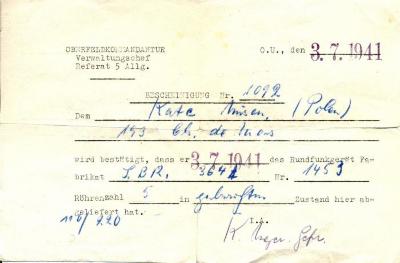 OBERFELDKOMMANDANTUR
Verwaltungschef
Referat 5 Allg.
O.U., den 3.7.1941
BESCHEINIGUNG Nr. 1092
Dem Katz (Polen)
193 Ch. de Mons
wird bestätigt, dass er 3.7.1941 das Rundfunkgerät Fa-
brikat S.B.R. 364A Nr. 1453
Röhrenzahl 5 in gebrauchtem Zustand hier ab-
geliefert hat.
110/220
I.A.
K.